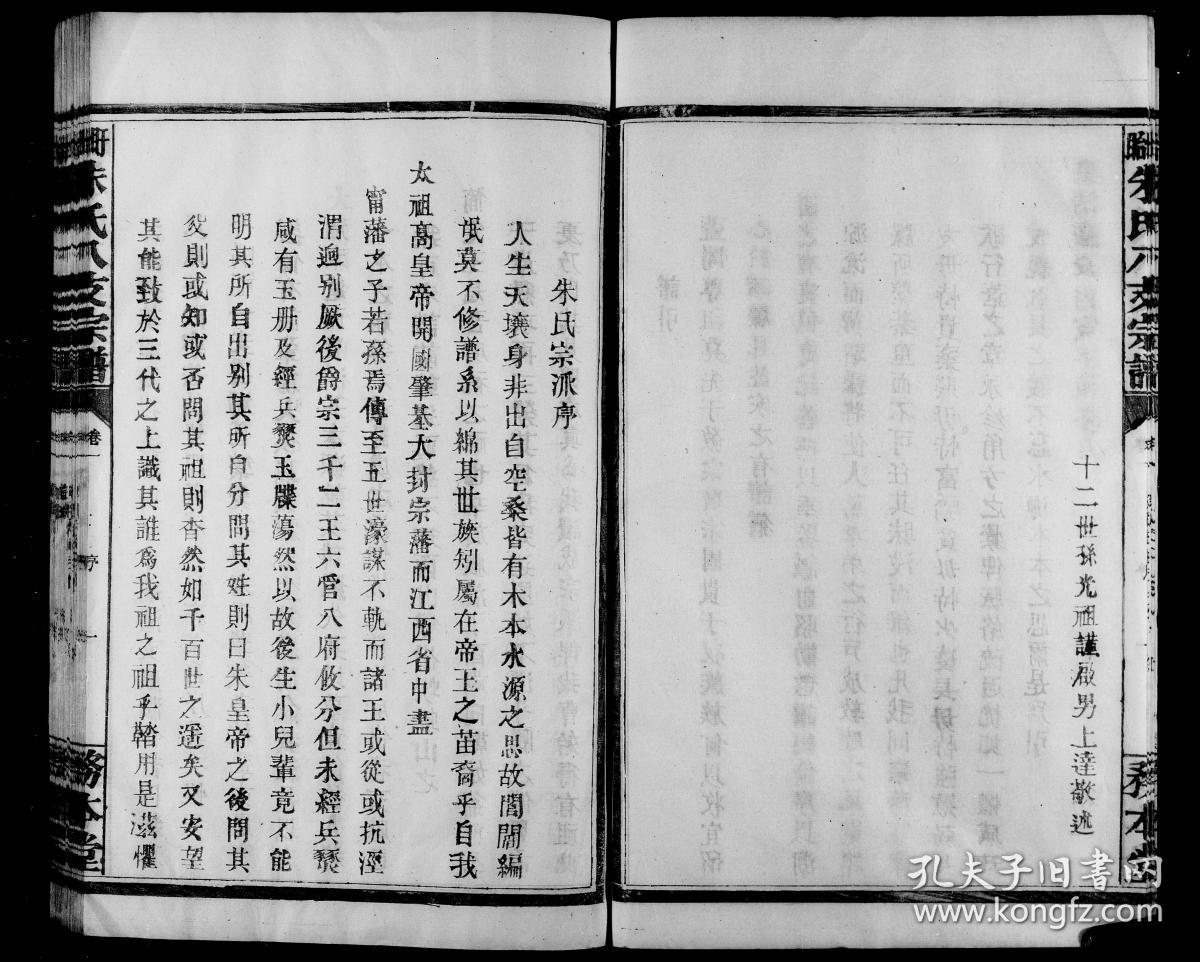 十二世孫光祖謹啟男上達敬述
朱氏宗派序
人生天壤身非出自空桑皆有木本水源之思故閭閻編
氓莫不修譜系以綿其世族矧屬在帝王之苗裔乎自我
太祖高皇帝開國肇基大封宗藩而江西省中盡
甯藩之子若孫焉傳至五世濠謀不軌而諸王或從或抗涇
渭迥別厥後爵宗三千二王六管八府攸分但未經兵燹
咸有玉册及經兵燹玉牒蕩然以故後生小兒輩竟不能
明其所自出別其所自分問其姓則曰朱皇帝之後問其
父則或知或否問其祖則杳然如千百世之遥矣又安望
其能致於三代之上識其誰為我祖之祖乎 用是滋懼
朱氏八支宗譜
卷
序
一
務本堂
朱氏八支宗譜
務本堂
孔夫子旧书网
www.kongfz.com